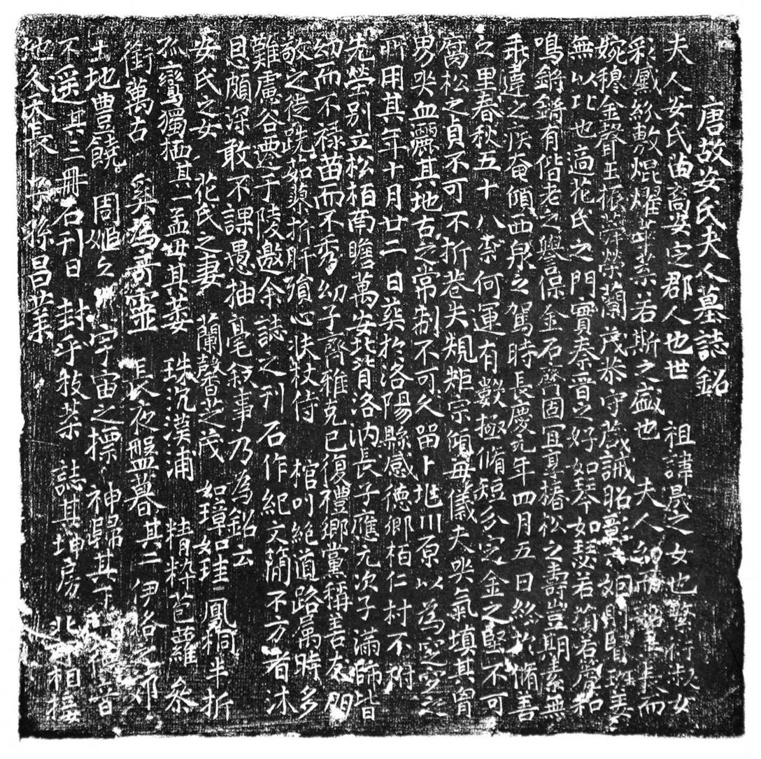 唐故安氏夫人墓誌銘
夫人安氏苗裔安定郡人也世 祖諱晸之女也繁衍淑女
彩戲絲敷焜燿華萼若斯之盛也 夫人幼而 長而
婉穆金聲玉振蕚榮蘭茂恭守箴誡昭 姆則閨 美
無以比也適花氏之門實秦晉之好如琴如瑟若蘭若蓀和
鳴鏘鏘有偕老之譽葆金石齊固冝享椿松之壽豈期素無
乖違之疾奄傾西泉之駕時長慶元年四月五日終於脩善
之里春秋五十八柰何運有數極脩短分定金之堅不可
腐松之貞不可不折巷失規矩宗傾毋儀夫哭氣填其胷
男哭血灑其地古之常制不可久留卜兆川原以為窆穸之
所用其年十月廿二日葬於洛陽縣感德鄉栢仁村不祔
先塋別立松栢南瞻萬安北背洛汭長子應元次子滿師皆
幼而不祿苗而不秀幼子齊雅克己復禮鄉黨稱善友朋
敬之徒跣茹蘗折肝殞心扶杖侍 棺叫絕道路属時多
難慮谷變于陵邀余誌之刊石作紀文簡不方者沐
恩頗深敢不課愚抽毫敘事乃為銘云
安氏之女 花氏之妻 蘭馨芝茂 如璋如珪 鳳桐半折
孤鸞獨栖其一孟母其萎 珠沉漢浦 精粹苞蘿 
銜萬古 奚為 靈 長夜盤暮其二伊洛 郊
土地豊饒 周姬之 宇宙之標 神歸其下 音
不遥其三冊石刊日 封乎枝葉 誌其坤房 北 相接
地久天長 子孫昌葉